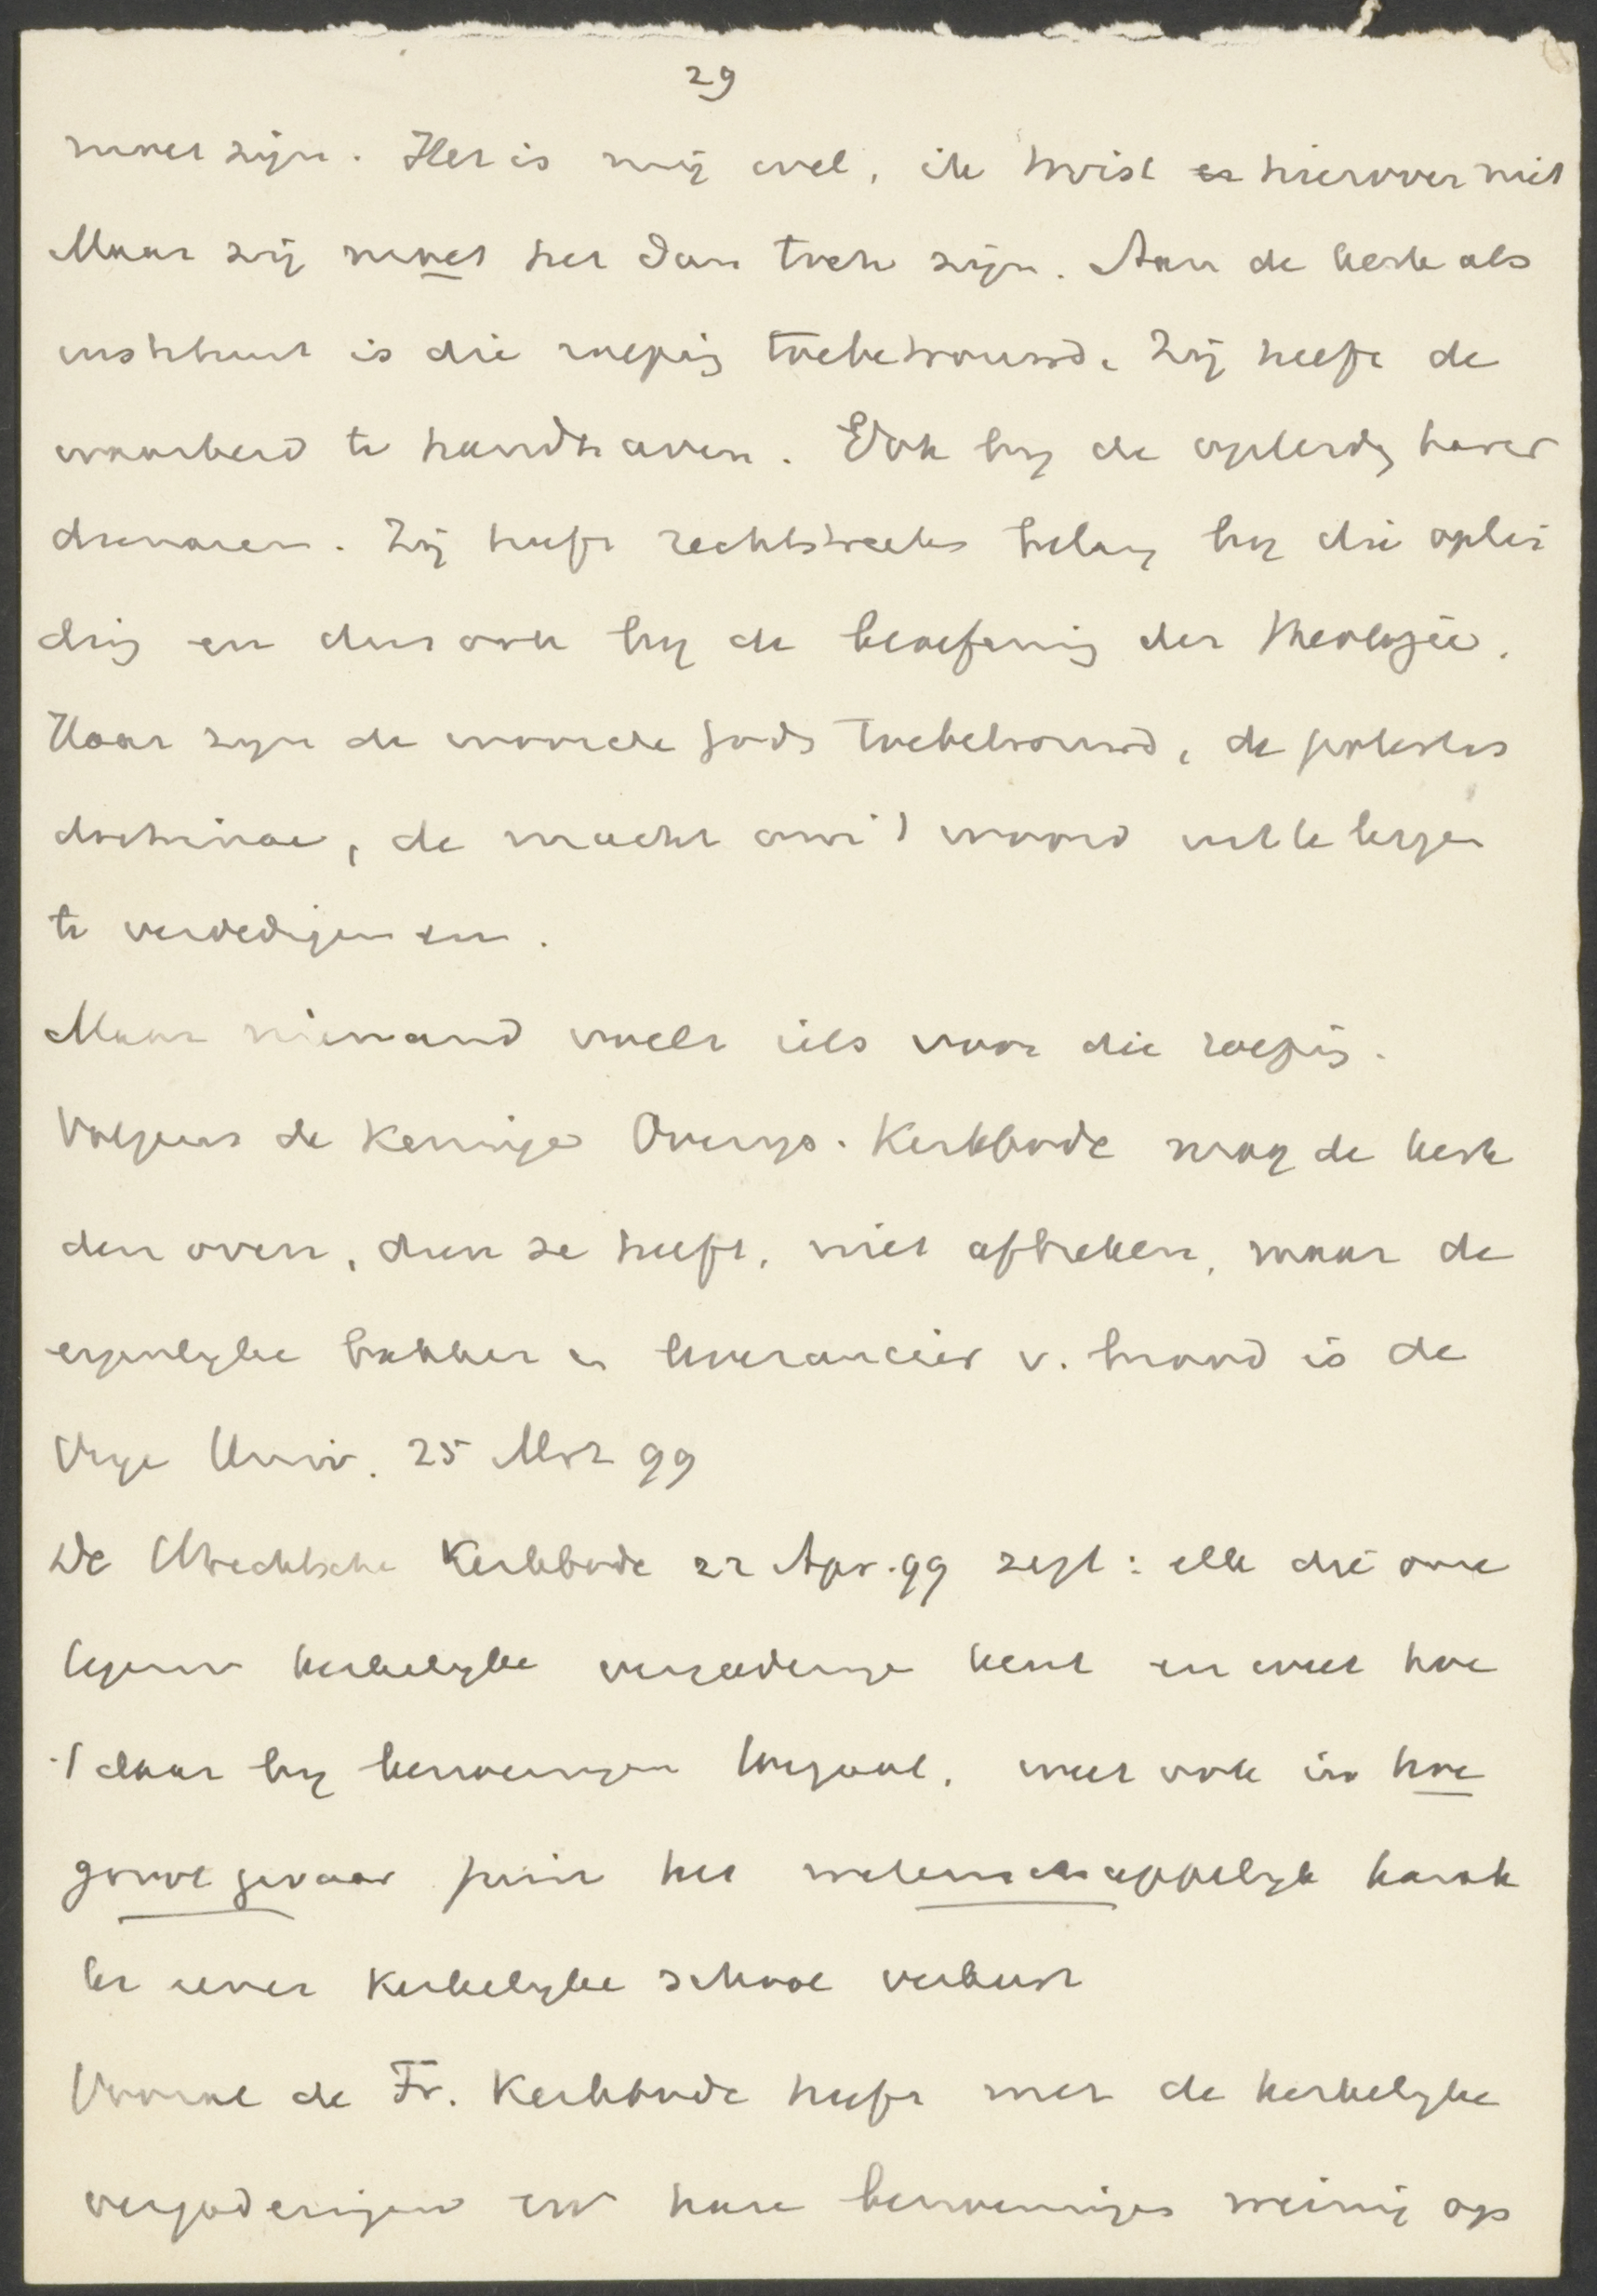 29
moet zijn. Het is mij wel, ik twist er hierover niet
Maar zij moet het dan toch zijn. Aan de kerk als
instituut is die roeping toebetrouwd. Zij heeft de
waarheid te handhaven. Ook by de opleidg harer
dienaren. Zij heeft rechtstreeks belang by die oplei
ding en dus ook by de beoefening der theologie.
Haar zyn de woorde Gods toebetrouwd, de potestas
doctrinae, de macht om 't woord uit te leggen
te verdedigen enz.
Maar niemand voelt iets voor die roeping.
Volgens de Overys. Kerkbode mag de kerk
den oven, dien ze heeft, niet afbreken, maar de
eigenlyke bakker en leverancier v. brood is de
Vrye Univ. 25 Mrt 99
De Utrechtsche Kerkbode 22 Apr. 99 zegt: elk die onze
kerkelyke vergaderinge kent en weet hoe
't daar by benoemingen toegaat, weet ook in hoe
groot gevaar het wetenschappelyk karak
ter eener Kerkelyke school verkeert
Vooral de Fr. Kerkbode heeft met de kerkelyke
vergaderingen en hare benoemingen weinig op